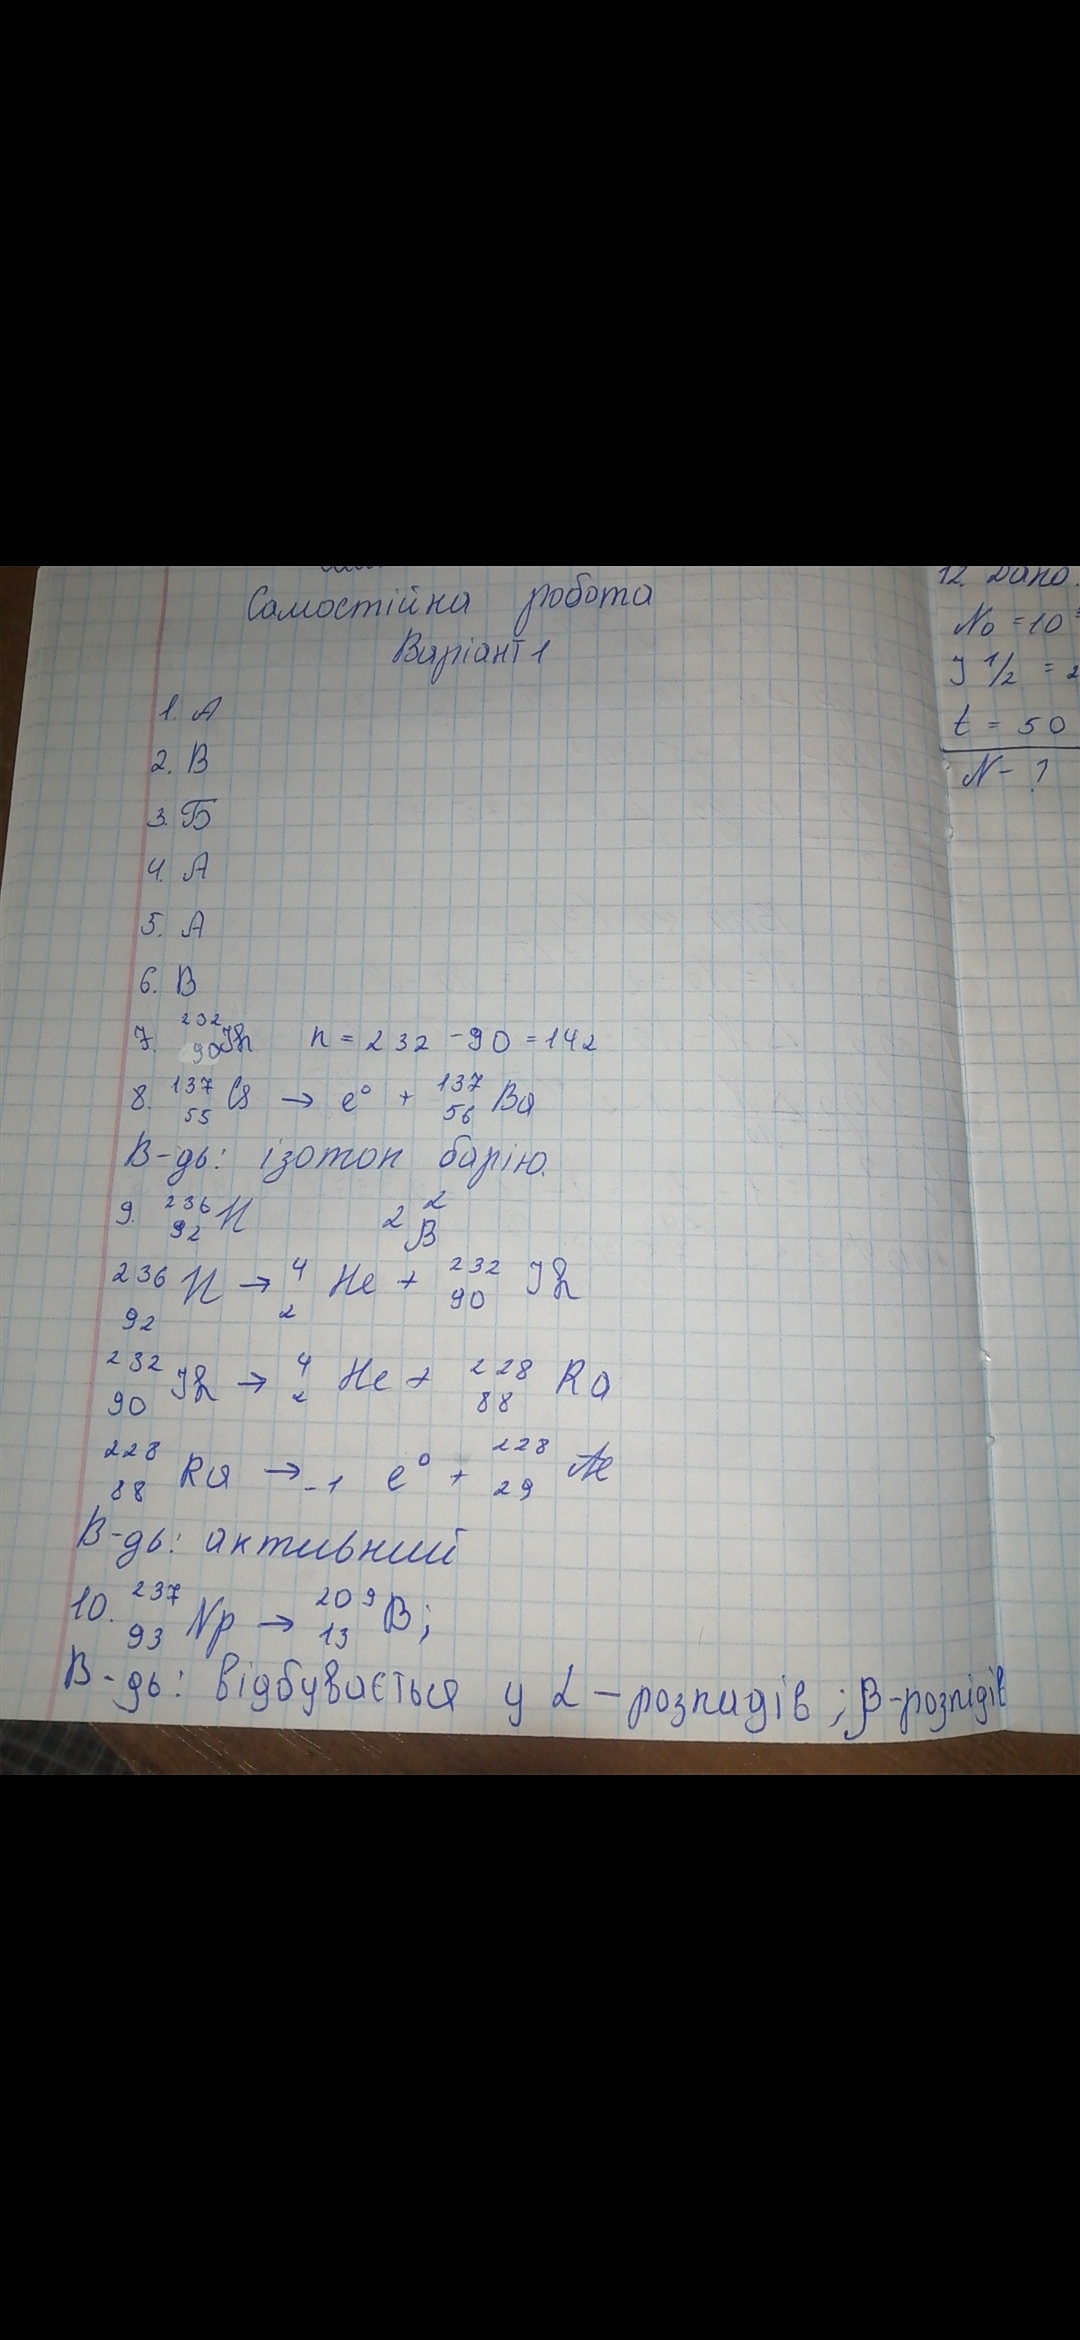 Самостійна робота
Варіант 1
1. А
2. В
3. Б
4. А
5. А
6. В
7. ²³²₉₀Th n = 232 - 90 = 142
8. ¹³⁷₅₅Cs → e⁰ + ¹³⁷₅₆Ba
В-дь: ізотоп барію.
9. ²³⁶₉₂U 2 2 β
²³⁶₉₂U → ⁴₂He + ²³²₉₀Th
²³²₉₀Th → ⁴₂He + ²²⁸₈₈Ra
²²⁸₈₈Ra → ₋₁e⁰ + ²²⁸₂₉Ac
В-дь: активний
10. ²³⁷₉₃Np → ²⁰⁹₁₃B;
В-дь: відбувається 4 α - розпадів ; β-розпідів
12. Дано:
N₀ = 10
T 1/2 = 2
t = 50
N - ?